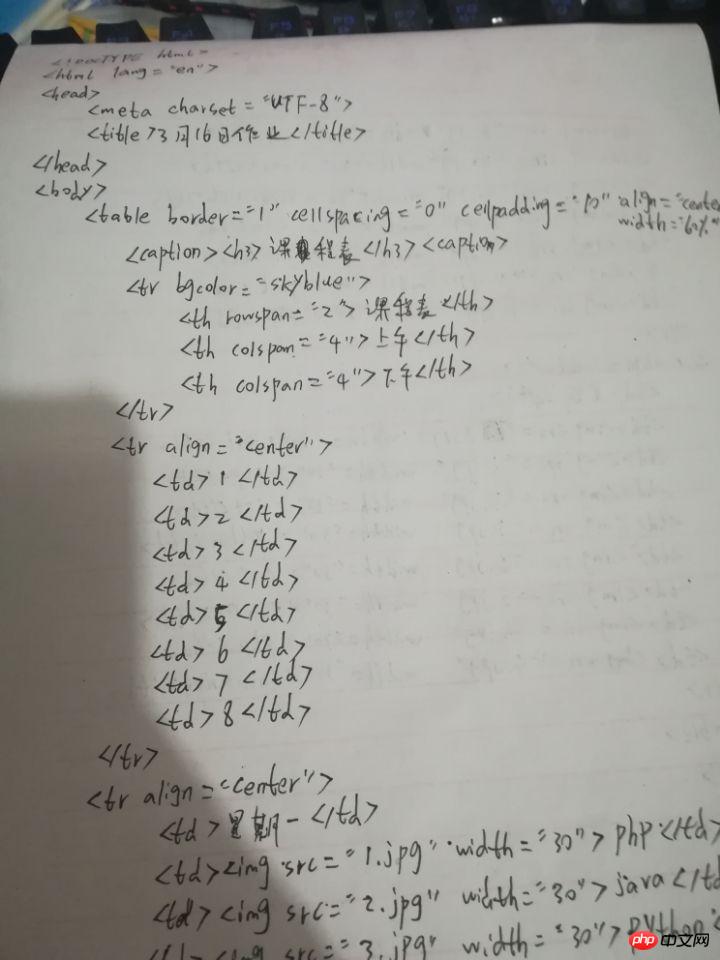 <!DOCTYPE html>
<html lang="en">
<head>
<meta charset="UTF-8">
<title>3月16日作业</title>
</head>
<body>
<table border="1" cellspacing="0" cellpadding="10" align="center
width="60%"
<caption><h3>课程表</h3><caption>
<tr bgcolor="skyblue">
<th rowspan="2">课程表</th>
<th colspan="4">上午</th>
<th colspan="4">下午</th>
</tr>
<tr align="center">
<td>1</td>
<td>2</td>
<td>3</td>
<td>4</td>
<td>5</td>
<td>6</td>
<td>7</td>
<td>8</td>
</tr>
<tr align="center">
<td>星期一</td>
<td><img src="1.jpg" width="30">php</td>
<td><img src="2.jpg" width="30">java</td
<img src="3.jpg" width="30">python
php 中文网